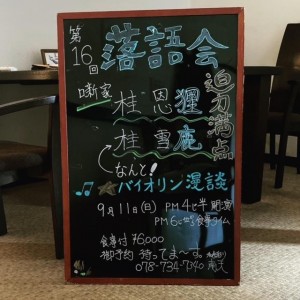 第16回 落語会
迫力満点
噺家 桂 恩狸
桂 雪鹿
なんと!
♫★バイオリン漫談
9月11日(日) PM4じ半 開演
PM6じから食事タイム
食事付 ¥6,000
御予約 待ってま〜す。
078-734-7340